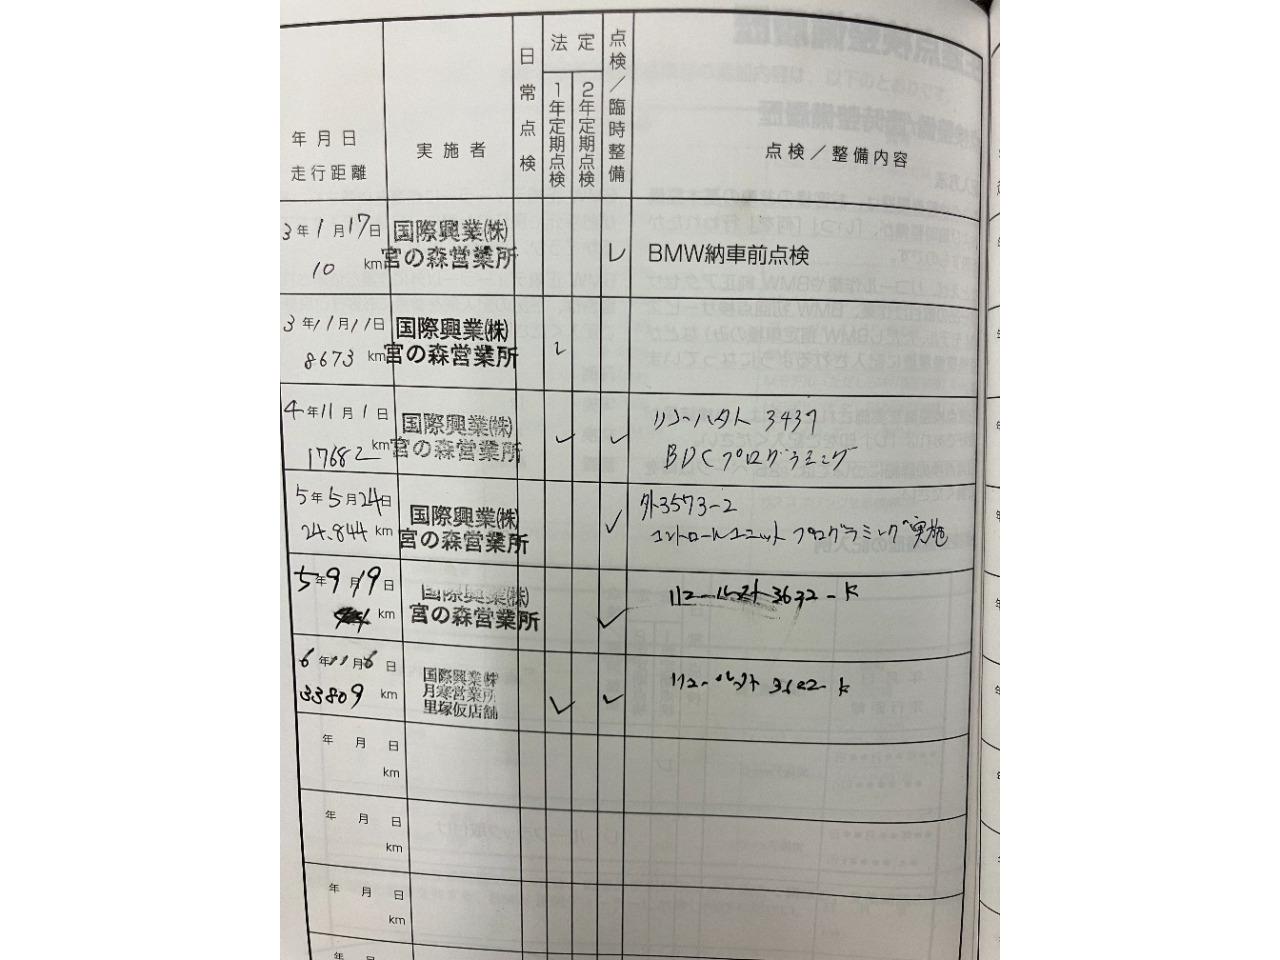 年月日
走行距離
実施者
日常点検
法定
1年定期点検
2年定期点検
点検／臨時整備
点検／整備内容
3年1月17日
10 km
国際興業㈱
宮の森営業所
レ
BMW納車前点検
3年11月11日
8673 km
国際興業㈱
宮の森営業所
レ
4年11月1日
17682 km
国際興業㈱
宮の森営業所
リコール外 3437
BDCプログラミング
5年5月24日
24.844 km
国際興業㈱
宮の森営業所
外3573-2
コントロールユニットプログラミング実施
5年9月19日
km
国際興業㈱
宮の森営業所
リコール対外3632-K
6年11月6日
33809 km
国際興業㈱
月寒営業所
里塚仮店舗
年 月 日
km
年 月 日
km
年 月 日
km
年 月 日